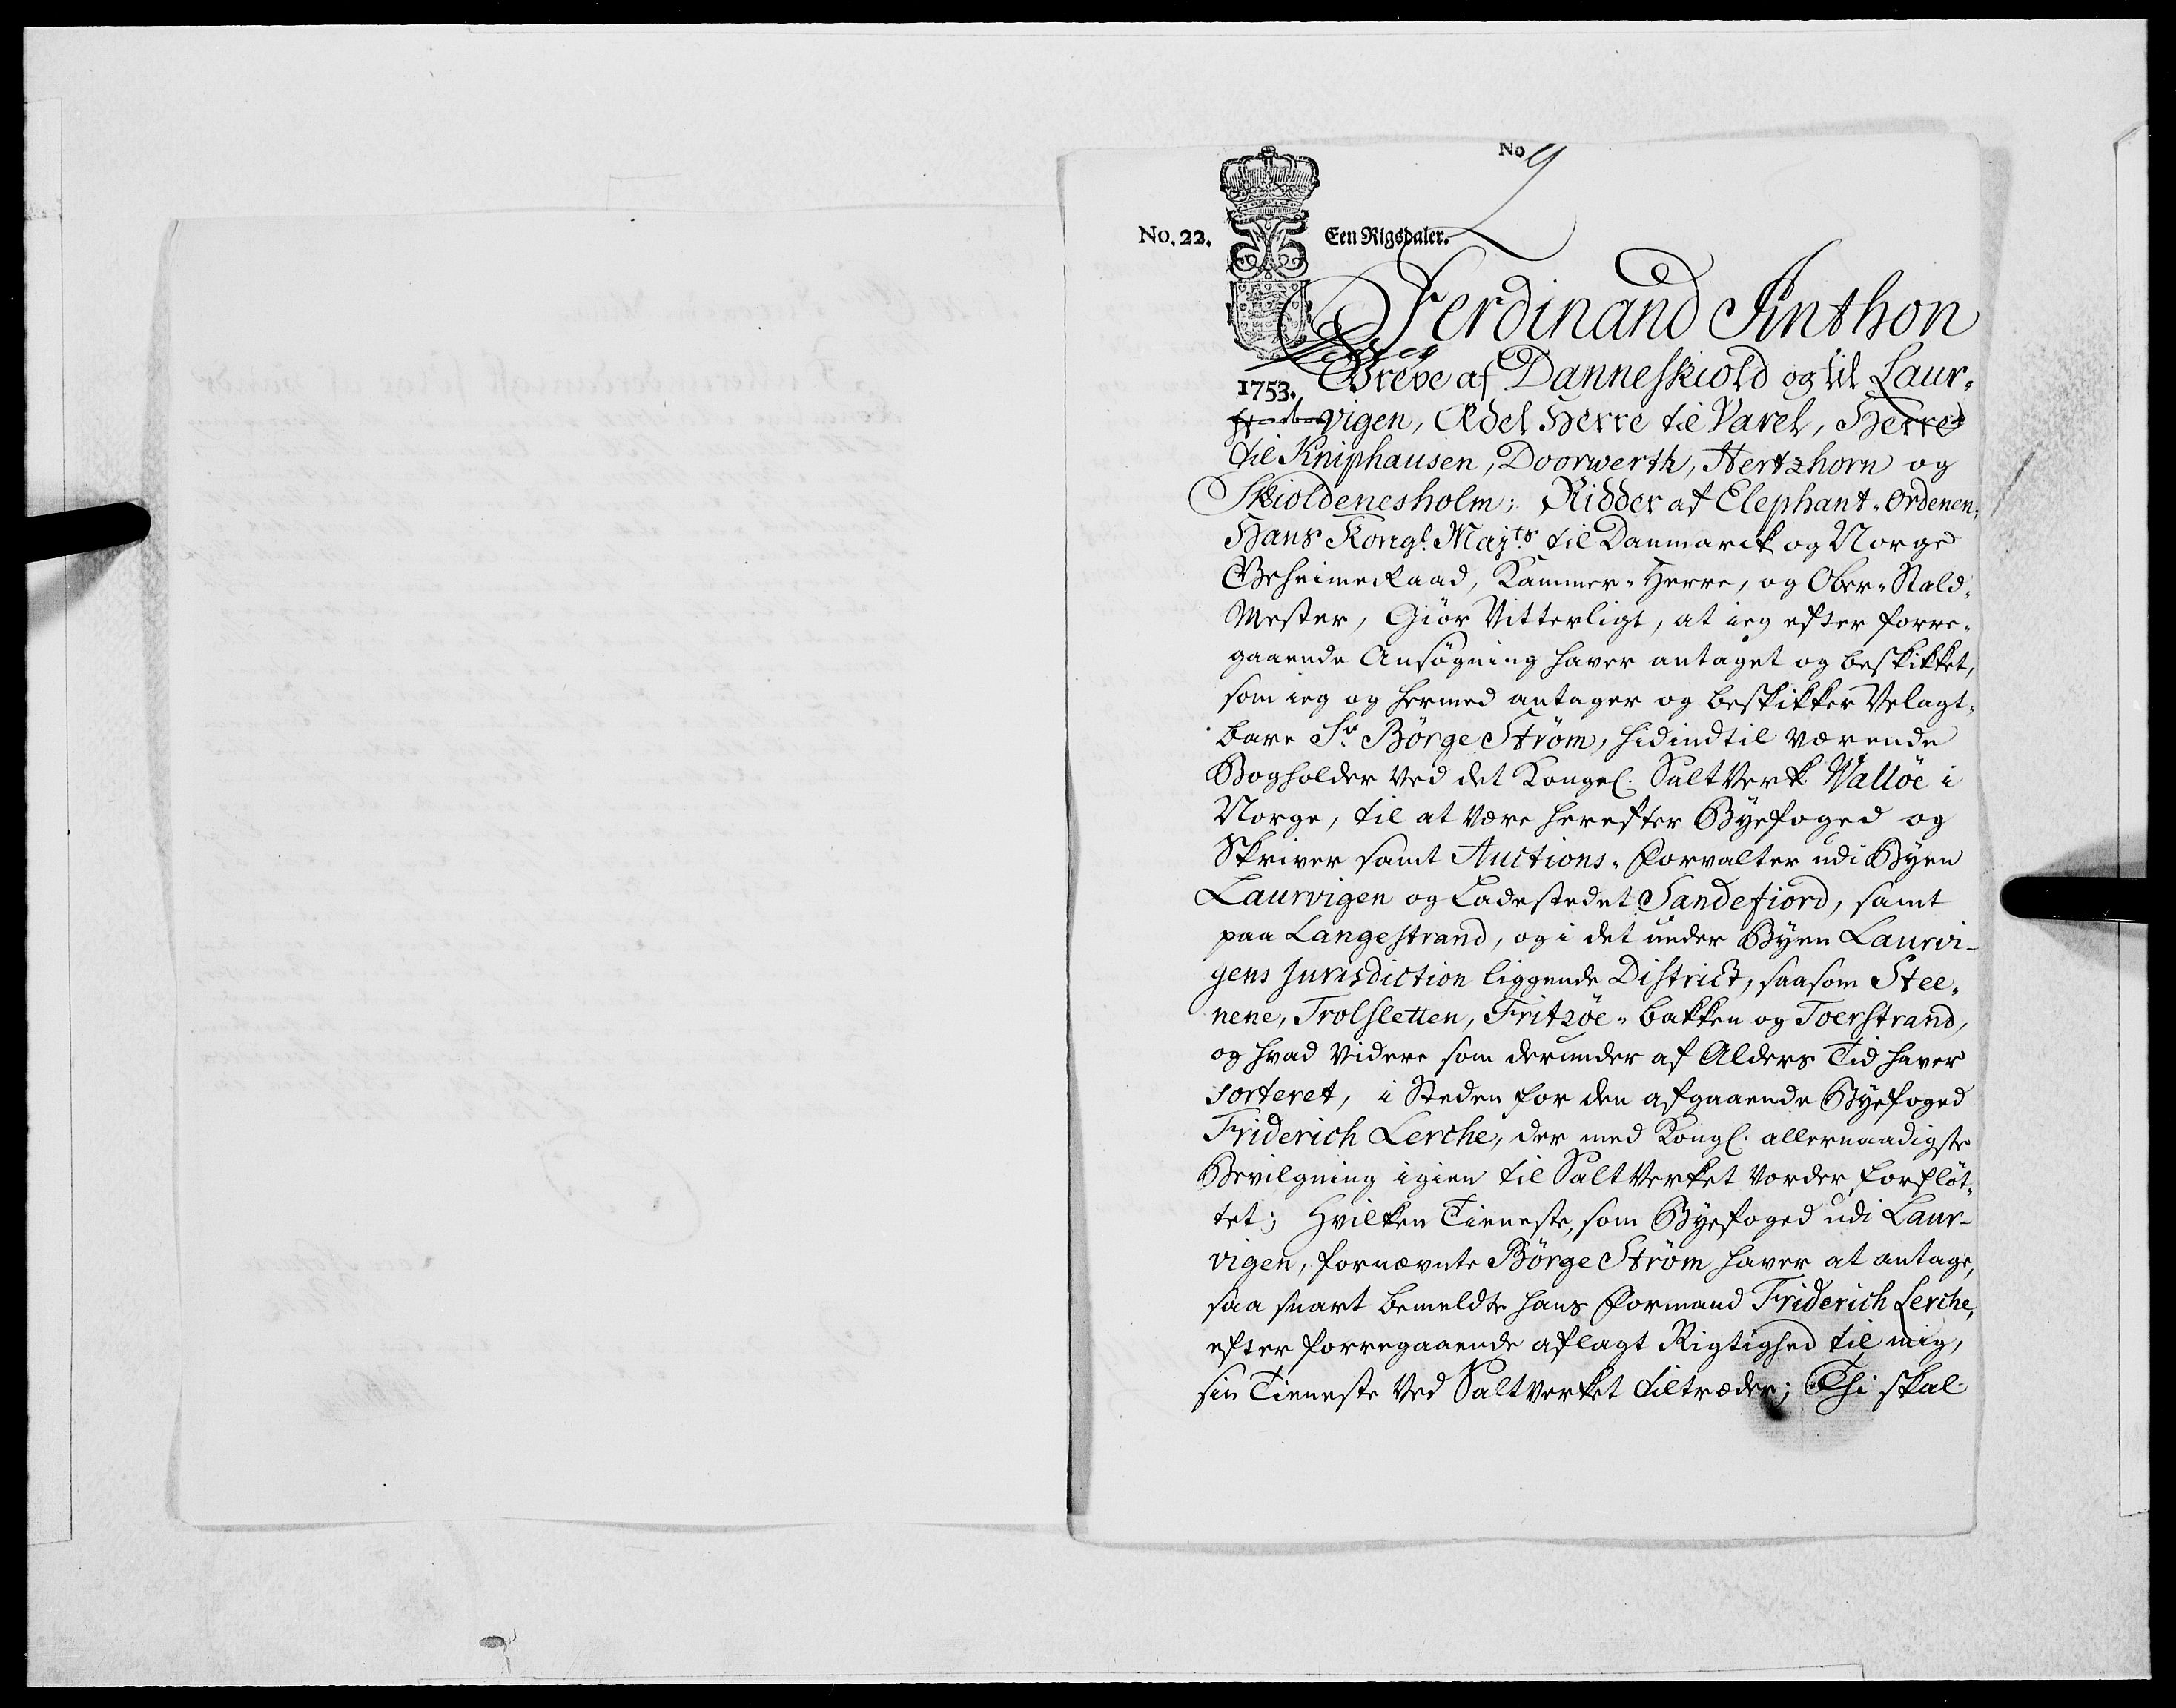 No 9
No. 22. Een Rigsdaler.
Ferdinand Anthon
1753. Greve af Danneskiold og til Laur-
vigen, Ædel Herre til Varel, Herre
til Kniphausen, Doorwerth, Hertzhorn og
Skioldenesholm; Ridder af Elephant-Ordenen,
Hans Kongl. Mayts til Danmarck og Norge
Geheimeraad, Kammer-Herre, og Ober-Stald-
Mester, Giör Vitterligt, at ieg efter forre-
gaaende Ansögning haver antaget og beskikket,
som ieg og hermed antager og beskikker Velagt-
bare Sr. Börge Ström, hidindtil værende
Bogholder ved det Kongel. Saltverk Vallöe i
Norge, til at være herefter Byefoged og
Skriver samt Auctions-forvalter udi Byen
Laurvigen og Ladestedet Sandefiord, samt
paa Langestrand, og i det under Byen Laurvi-
gens Jurisdiction liggende District, saasom Stee-
nene, Trolsletten, Fritzöe-bakken og Toerstrand,
og hvad videre som derunder af Alders Tid haver
sorteret, i Steden for den afgaaende Byefoged
Friderich Lerche, der med Kongl. allernaadigste
Bevilgning igien til Saltverket vorder forflöt-
tet; Hvilken Tieneste, som Byefoged udi Laur-
vigen, fornævnte Börge Ström haver at antage,
saa snart bemeldte hans formand Friderich Lerche,
efter forregaaende aflagt Rigtighed til mig,
sin Tieneste ved Saltverket tiltræder; Thi skal